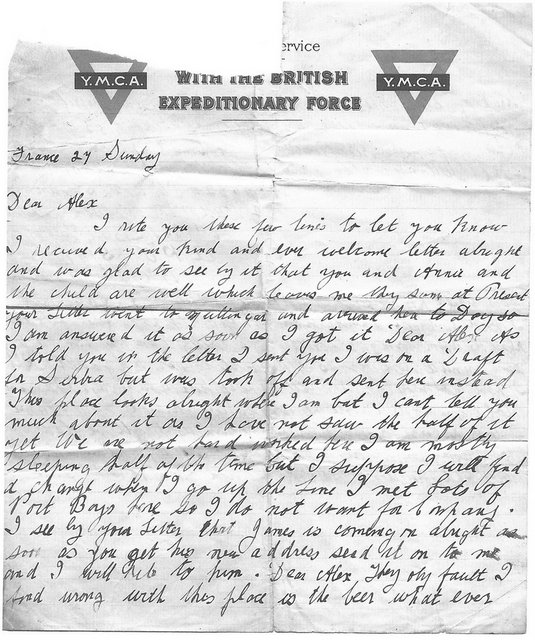 ervice
Y.M.C.A. Y.M.C.A.
WITH THE BRITISH
EXPEDITIONARY FORCE
France 27 Sunday
Dear Alex
I rite you these few lines to let you know
I received your kind and ever welcome letter alright
and was glad to see by it that you and Annie and
the child are well which leaves me they same at Present
your letter went to Mullingar and arrived here to Day so
I am answered it as soon as I got it Dear Alex As
I told you in the letter I sent you I was on a Draft
for Serbia but was took off and sent here instead
This place looks alright where I am but I cant tell you
much about it as I have not saw the half of it
yet We are not hard worked here I am mostly
sleeping half of the time but I suppose I will find
a change when I go up the line I met lots of
Port Boys here so I do not want for Company.
I see by your letter that James is coming on alright as
soon as you get his new address send it on to me
and I will rite to him. Dear Alex, They oly fault I
find wrong with this place is the beer what ever